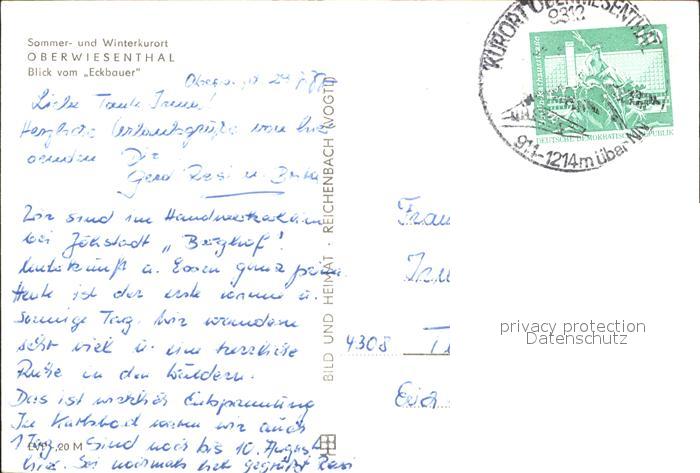 Sommer- und Winterkurort
OBERWIESENTHAL
Blick vom „Eckbauer"
Liebe Tante Irene!
Herzliche Urlaubsgrüße von hier
senden Dir
Gerd Resi u.
Wir sind im
bei Jöhstadt „Berghof".
Unterkunft u. Essen ganz prima.
Heute ist der erste warme u.
sonnige Tag. Wir wandern
sehr viel u. eine herrliche
Ruhe in den Wäldern.
Das ist wirklich Entspannung
In Karlsbad waren wir auch
1 Tag. Sind noch bis 10. August
hier. Sei nochmals gegrüßt Resi
EVP ,20 M
BILD UND HEIMAT · REICHENBACH (VOGTL)
KURORT OBERWIESENTHAL
9312
914-1214m über NN
DEUTSCHE DEMOKRATISCHE REPUBLIK
Frau
4308
privacy protection
Datenschutz